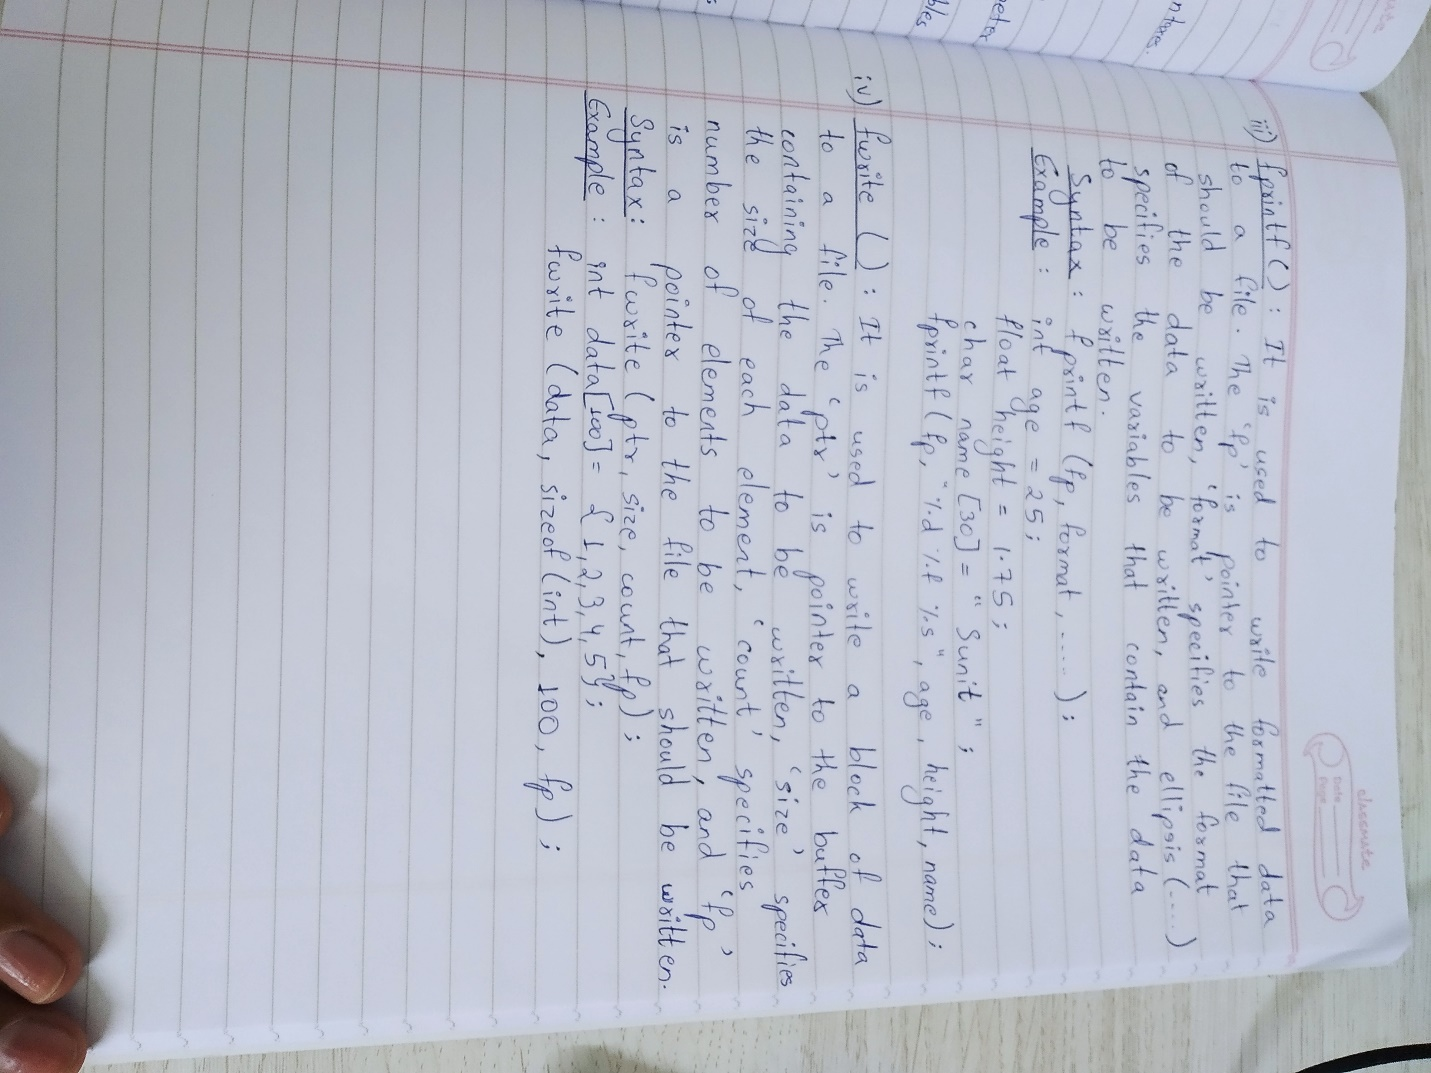 classmate
Date
Page
iii) fprintf () : It is used to write formatted data
to a file. The 'fp' is pointer to the file that
should be written, 'format' specifies the format
of the data to be written, and ellipsis (.....)
specifies the variables that contain the data
to be written.
Syntax : fprintf (fp, format, .....);
Example : int age = 25;
float height = 1.75;
char name [30] = "Sunit";
fprintf (fp, "%d %f %s", age, height, name);
iv) fwrite () : It is used to write a block of data
to a file. The 'ptr' is pointer to the buffer
containing the data to be written, 'size' specifies
the size of each element, 'count' specifies
number of elements to be written, and 'fp'
is a pointer to the file that should be written.
Syntax: fwrite (ptr, size, count, fp);
Example : int data[100] = {1,2,3,4,5};
fwrite (data, sizeof (int), 100, fp);